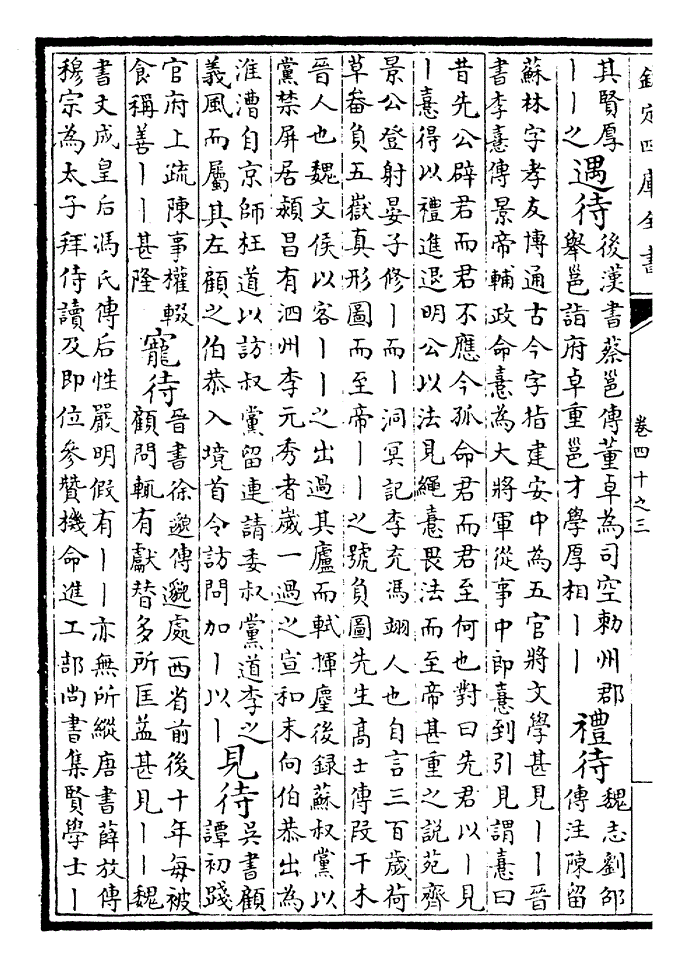 欽定四庫全書
卷四十之三
其賢厚
丨丨之
遇待
後漢書蔡邕傳董卓為司空勅州郡
舉邕詣府卓重邕才學厚相丨丨
禮待
魏志劉卲
傳注陳留
蘇林字孝友博通古今字指建安中為五官將文學甚見丨丨晉
書李憙傳景帝輔政命憙為大將軍從事中郎憙到引見謂憙曰
昔先公辟君而君不應今孤命君而君至何也對曰先君以丨見
丨憙得以禮進退明公以法見繩憙畏法而至帝甚重之説苑齊
景公登射晏子修丨而丨洞冥記李充馮翊人也自言三百歲荷
草畚負五嶽真形圖而至帝丨丨之號負圖先生高士傳段干木
晉人也魏文侯以客丨丨之出過其廬而軾揮麈後録蘇叔黨以
黨禁屏居潁昌有泗州李元秀者歲一過之宣和末向伯恭出為
淮漕自京師枉道以訪叔黨留連請委叔黨道李之
義風而屬其左顧之伯恭入境首令訪問加丨以丨
見待
吳書顧
譚初踐
官府上疏陳事權輟
食稱善丨丨甚隆
寵待
晉書徐邈傳邈處西省前後十年每被
顧問輒有獻替多所匡益甚見丨丨魏
書文成皇后馮氏傳后性嚴明假有丨丨亦無所縱唐書薛放傳
穆宗為太子拜侍讀及即位參贊機命進工部尚書集賢學士丨